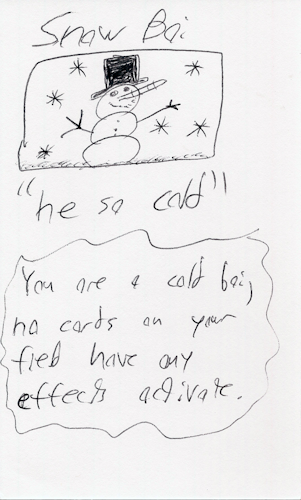 Snow Boi
"he so cold"
You are a cold boi,
no cards on your
field have any
effects activate.